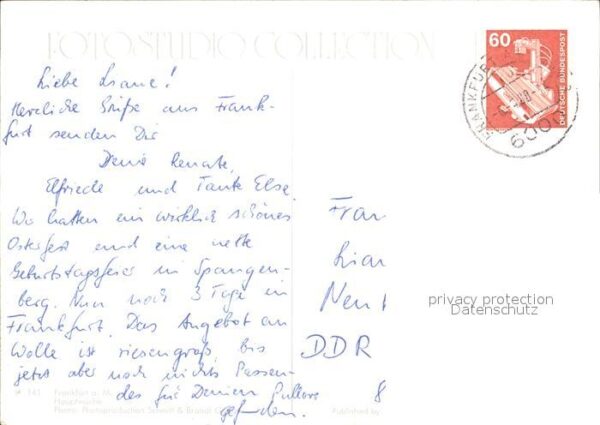 FOTOSTUDIO COLLECTION
Liebe Liane!
Herzliche Grüße aus Frank-
furt senden Dir
Deine Renate,
Elfriede und Tante Else.
Wir hatten ein wirklich schönes
Osterfest und eine nette
Geburtstagsfeier in Spangen-
berg. Nun noch 3 Tage in
Frankfurt. Das Angebot an
Wolle ist riesengroß, bis
jetzt aber noch nichts Passen-
des für Deinen Pullover
gefunden.
60
DEUTSCHE BUNDESPOST
FRANKFURT
6000
Frau
Lian
Neu
DDR
8
privacy protection
Datenschutz
Frankfurt a. M.
Hauptwache
Published by